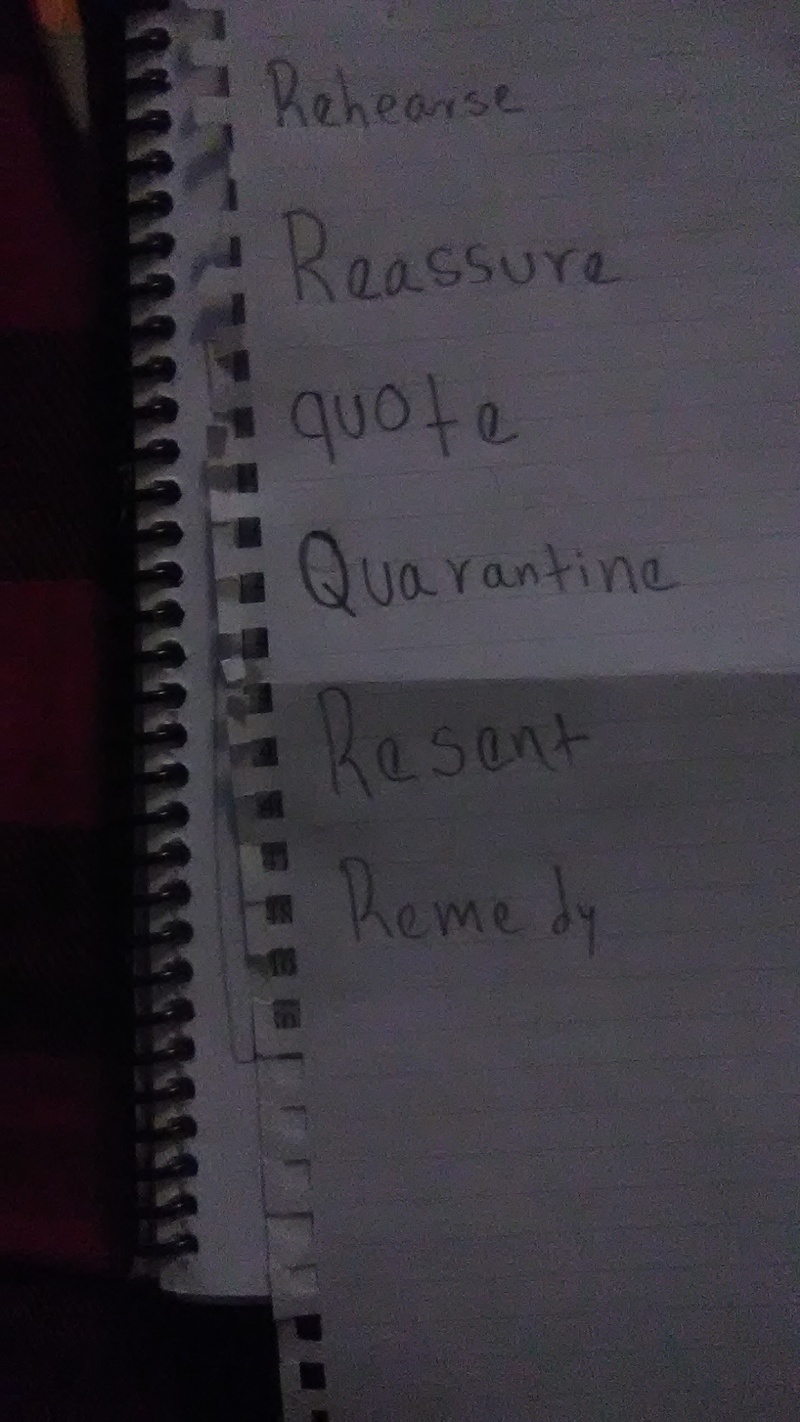 Rehearse
Reassure
quote
Quarantine
Resent
Remedy